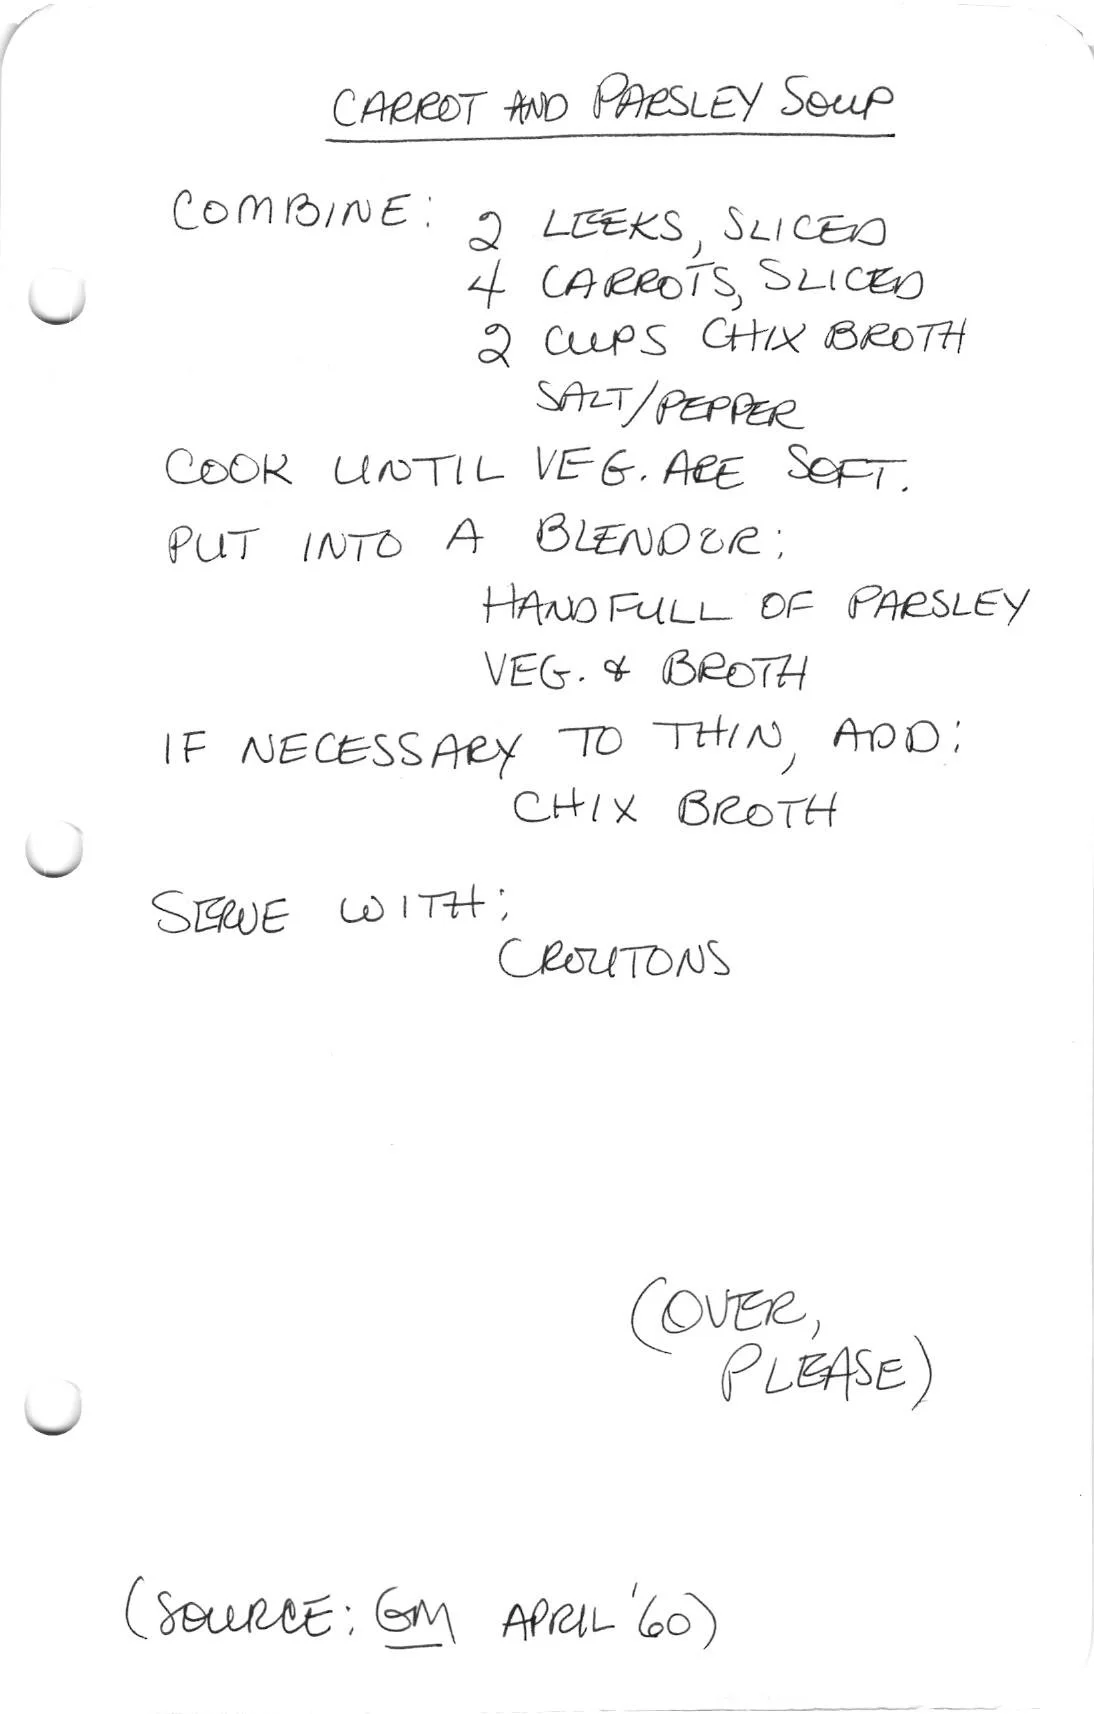 CARROT AND PARSLEY SOUP
COMBINE: 2 LEEKS, SLICED
4 CARROTS, SLICED
2 CUPS CHIX BROTH
SALT/PEPPER
COOK UNTIL VEG. ARE SOFT.
PUT INTO A BLENDER:
HANDFULL OF PARSLEY
VEG. & BROTH
IF NECESSARY TO THIN, ADD:
CHIX BROTH
SERVE WITH:
CROUTONS
(OVER,
PLEASE)
(SOURCE: GM APRIL '60)